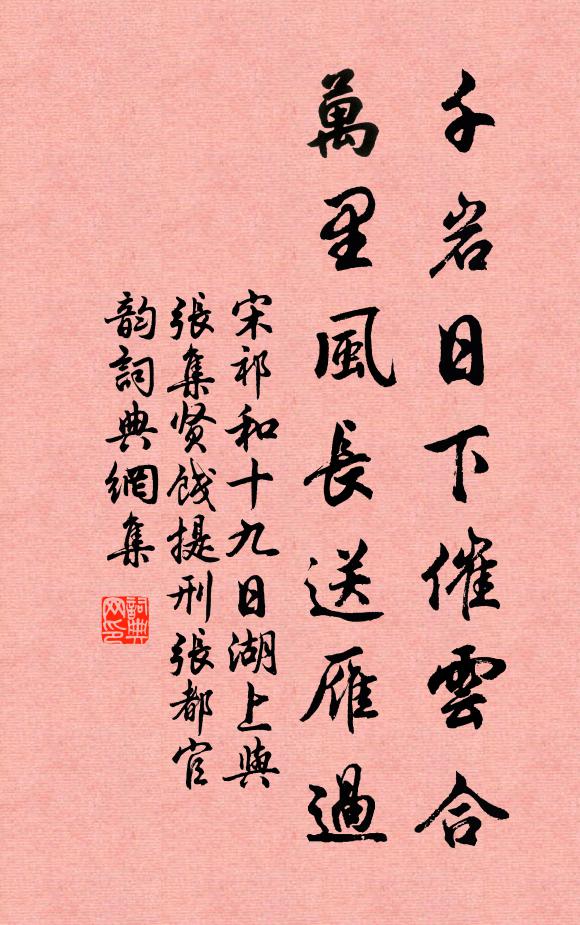 千岩日下催雲合
萬里風長送雁過
宋祁和十九日湖上與
張集贤餞提刑張都官
韵詞典網集
詞典网印